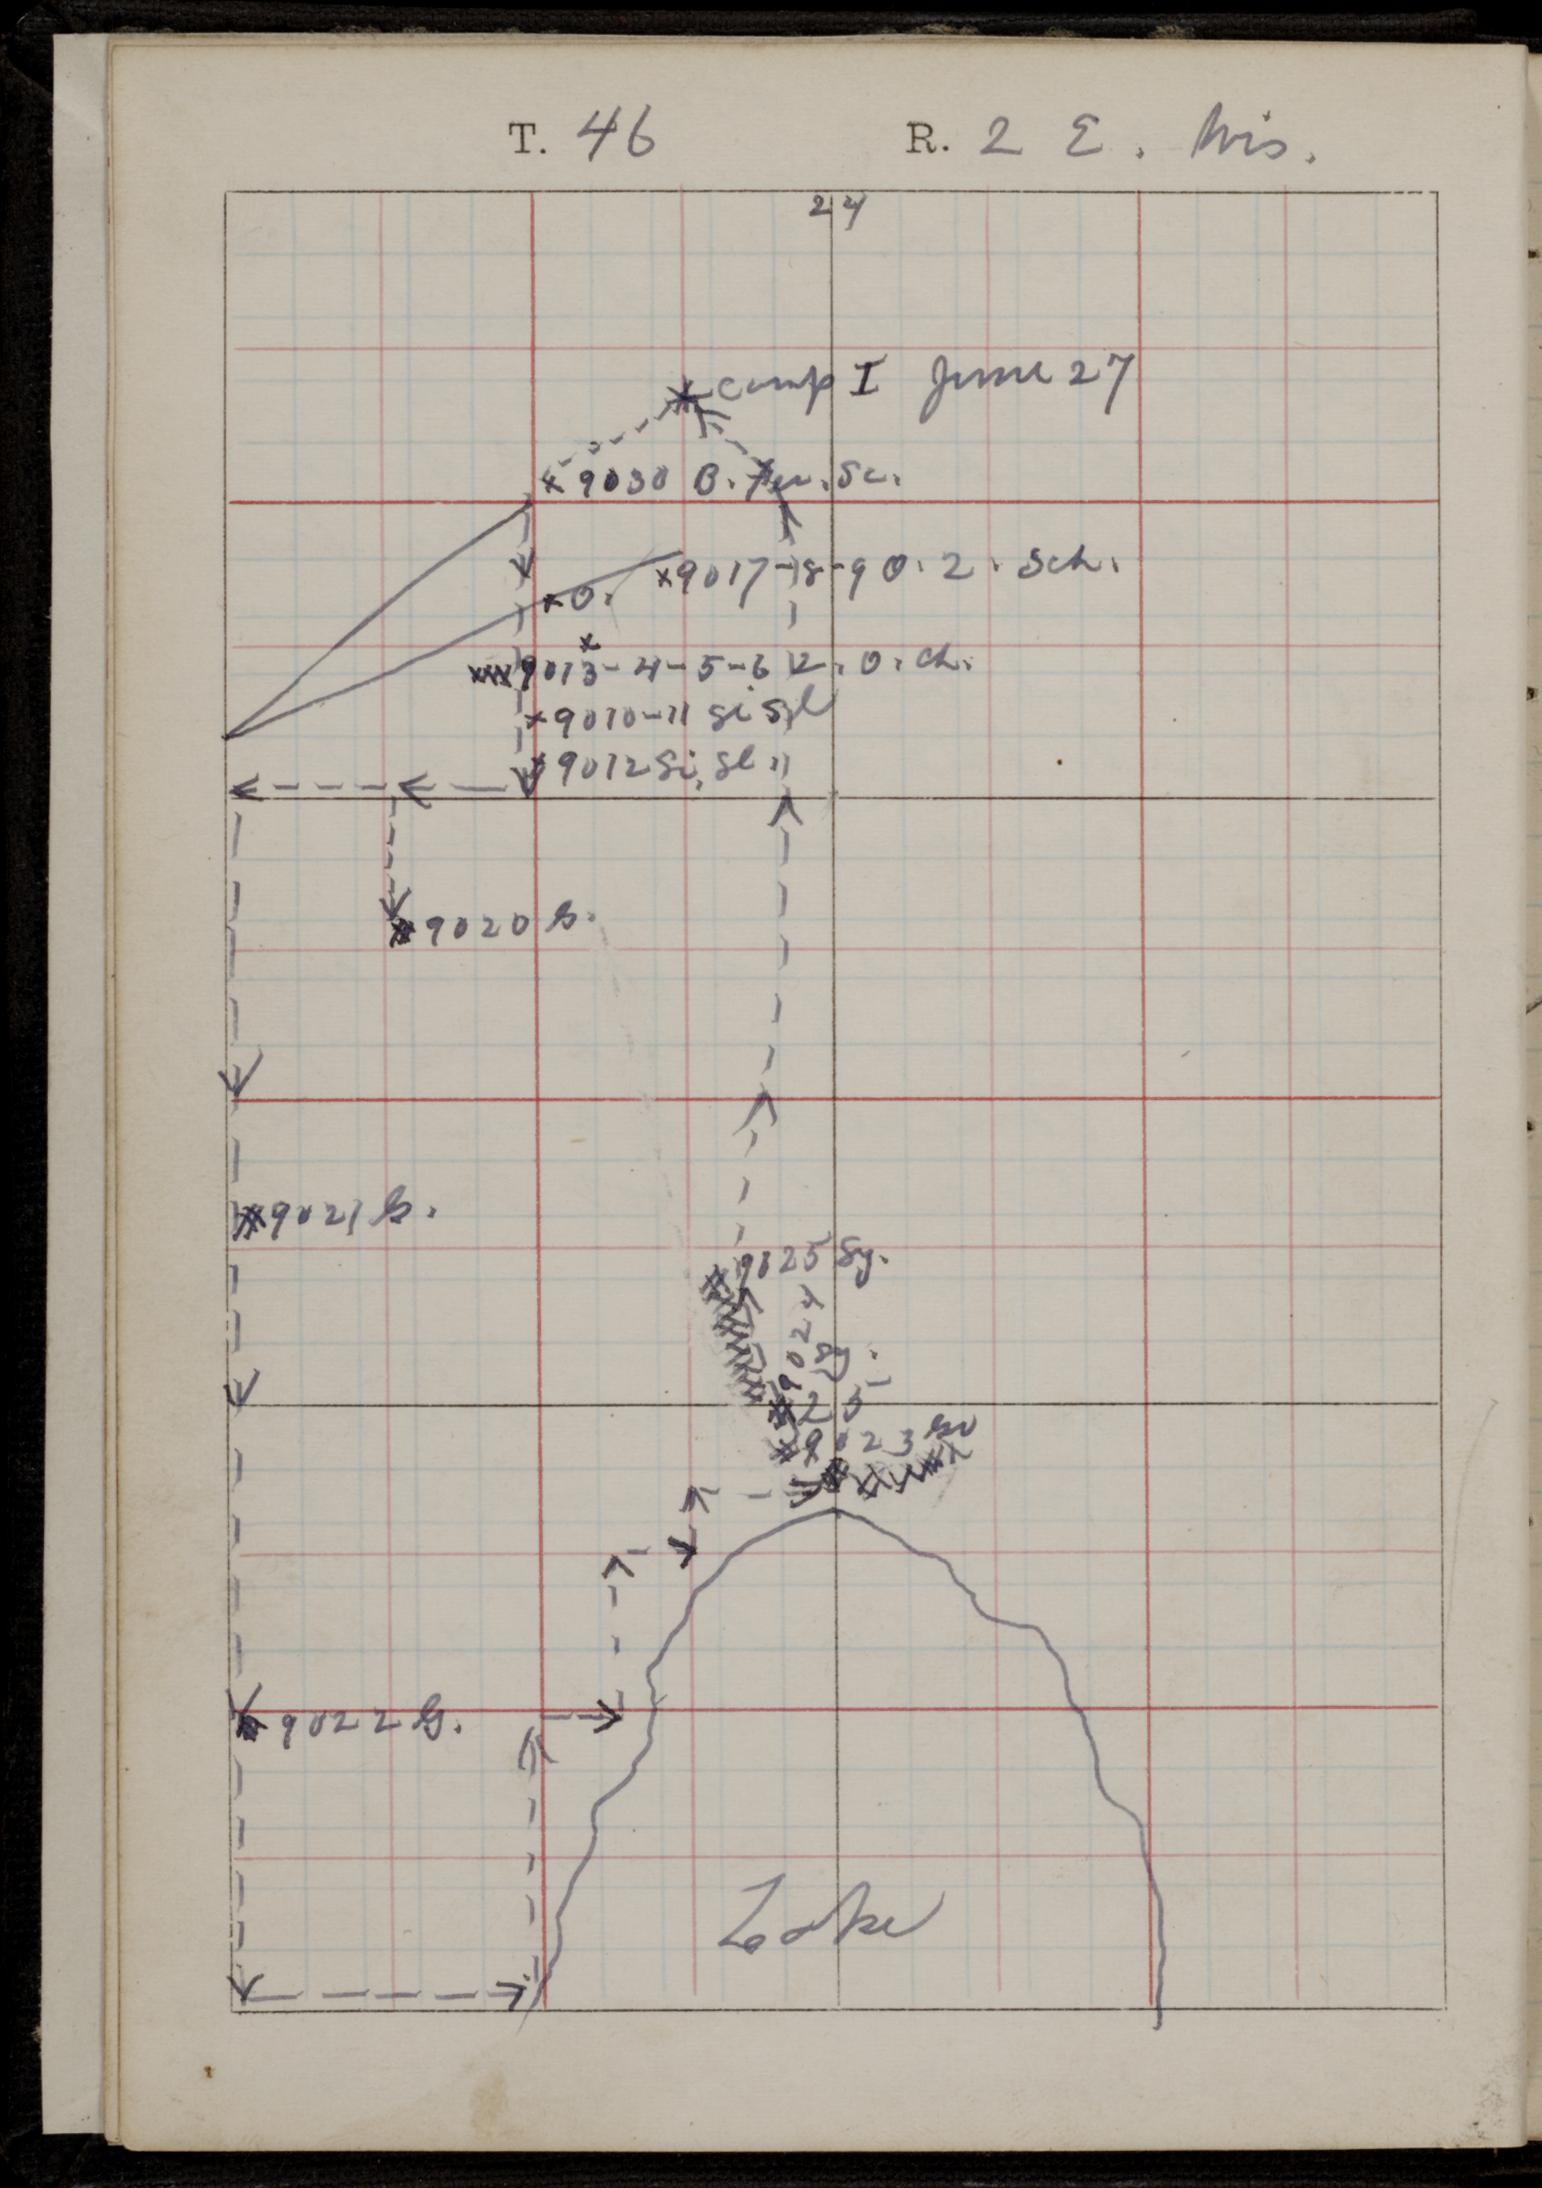 T. 46 R. 2 E. Wis.
24
camp I June 27
9030 B. Fer. Sc.
9017-18-9 O. 2. Sch.
O.
9013-4-5-6 O. ch.
9010-11 si Sl
9012 Si, Sl
9020 G.
9021 G.
9025 Sy.
9024
Sy.
25
9023
9022 G.
Lake